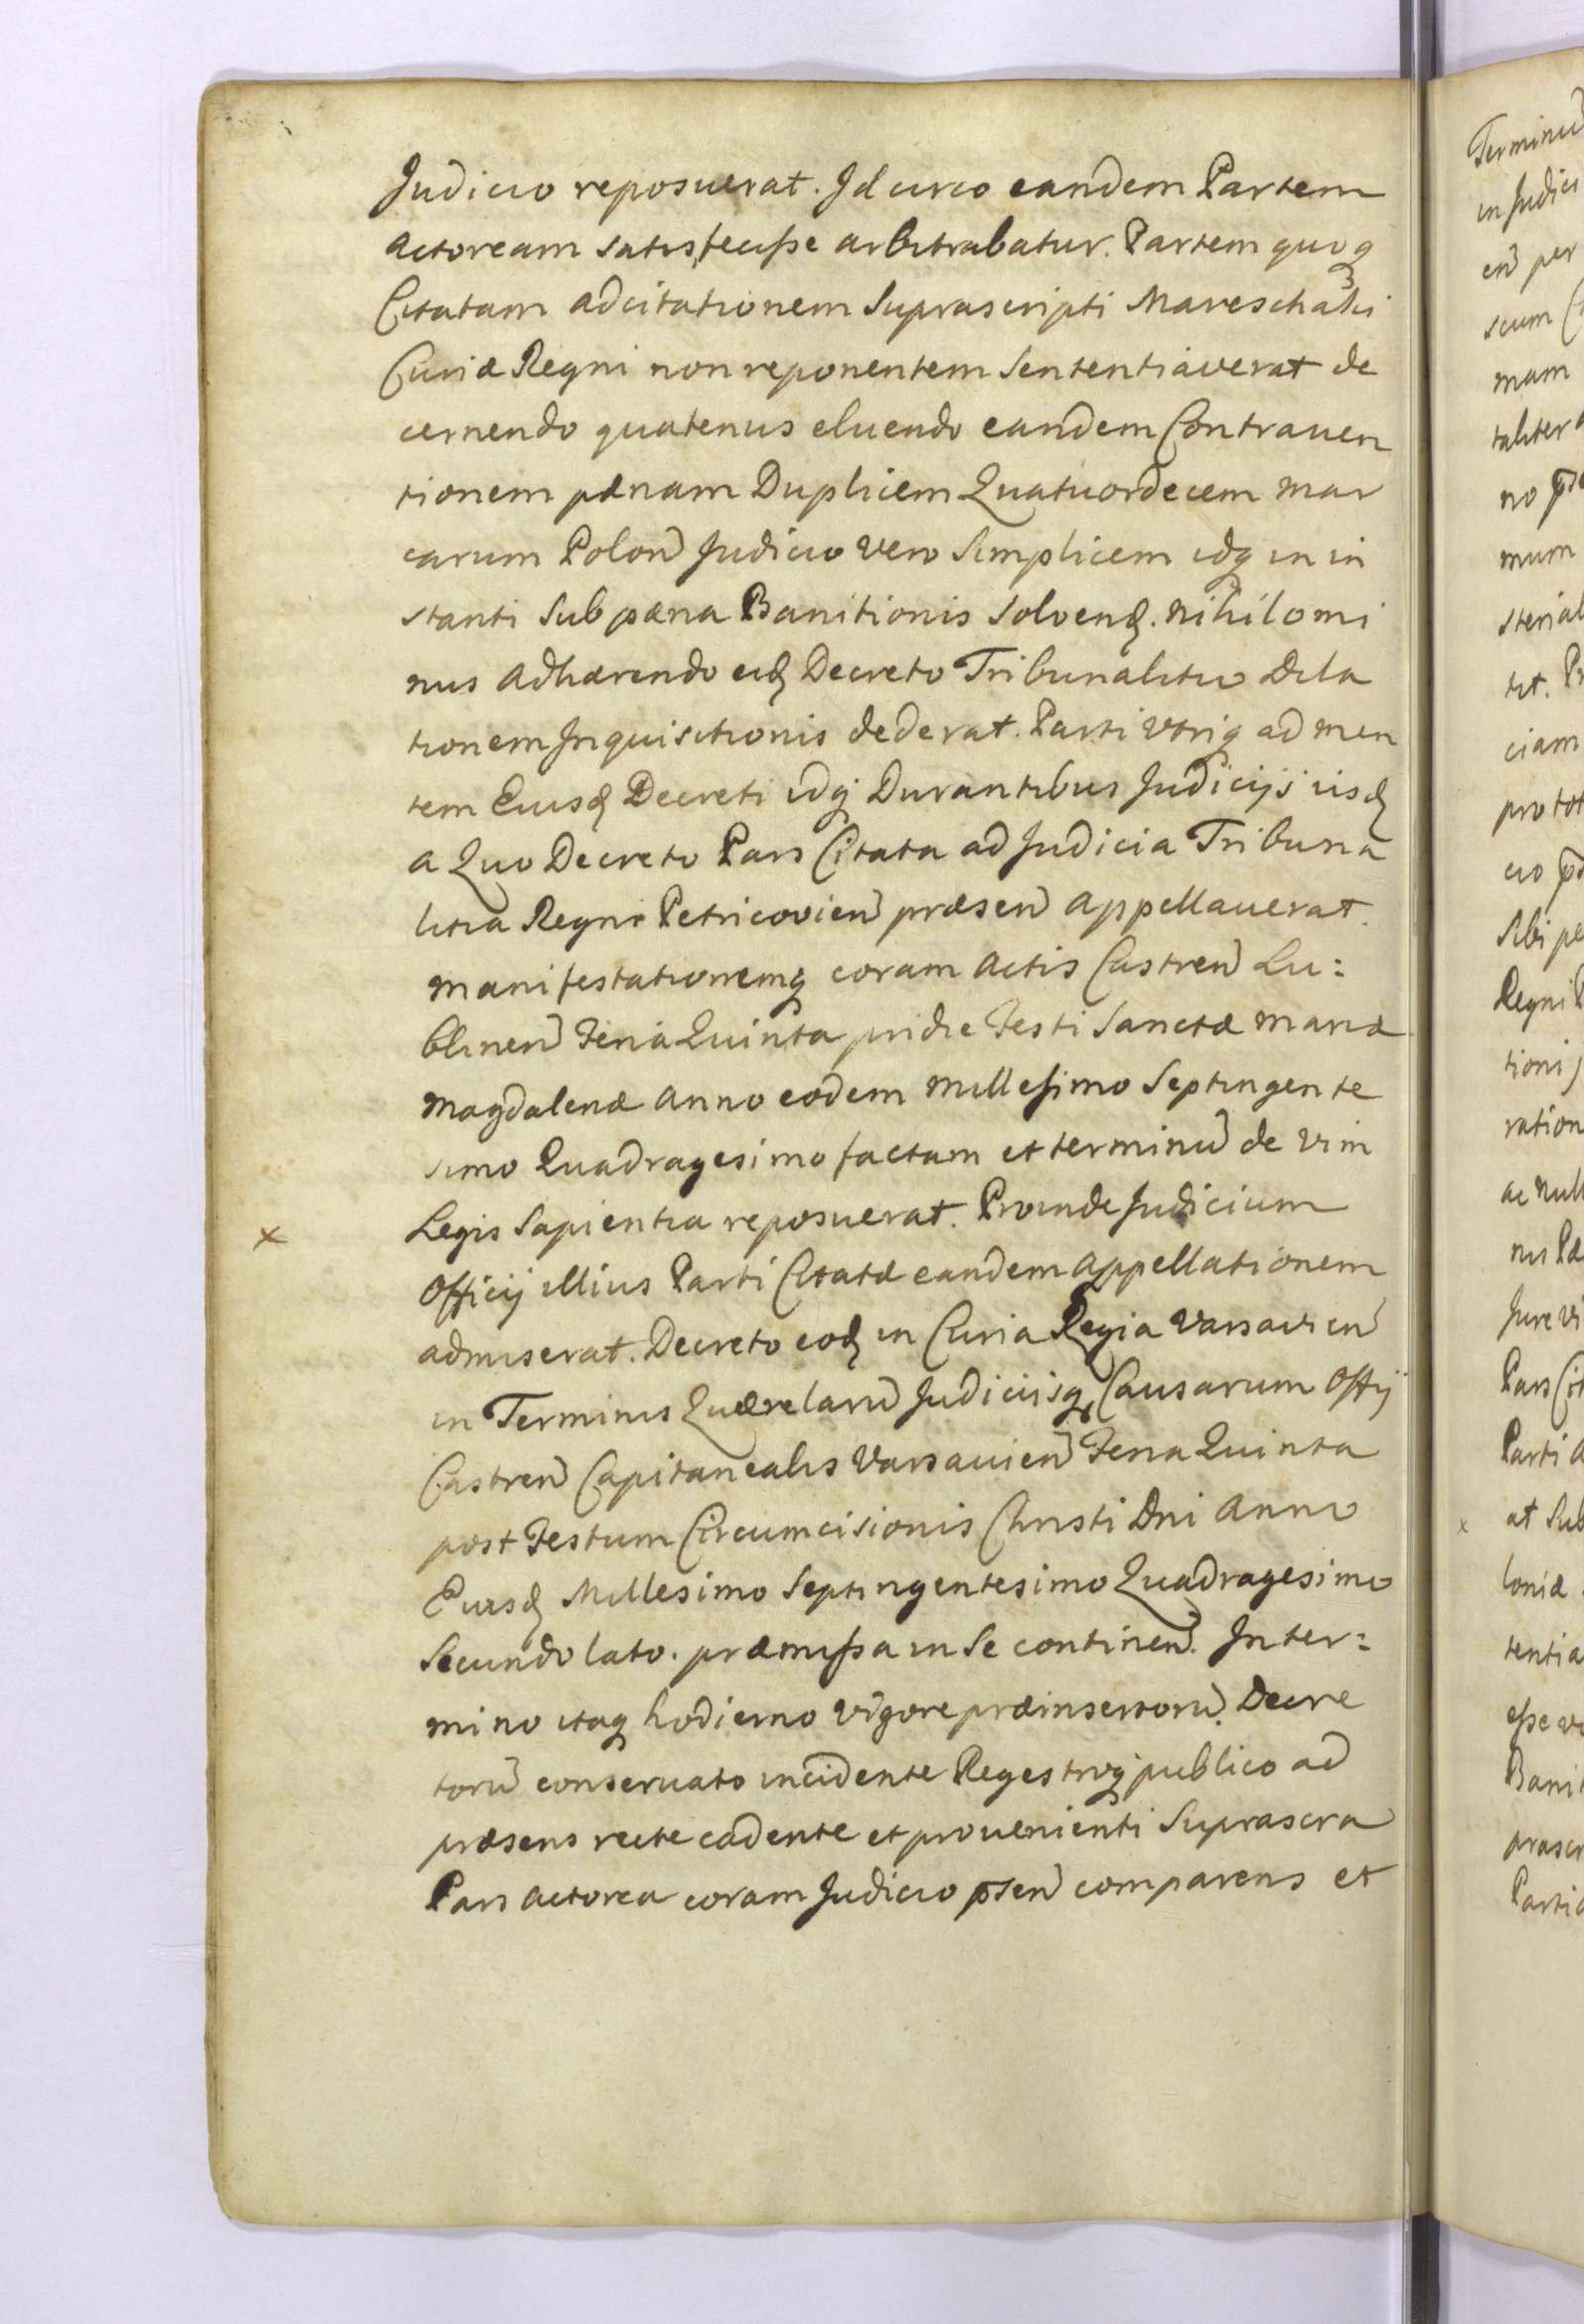 Judicio reposuerat. Idcirco eandem Partem
Actoream satisfecisse arbitrabatur. Partem quoq
Citatam adcitationem Suprascripti Mareschalci
Curiæ Regni non reponentem Sententiaverat de
cernendo quatenus eluendo eandem Contraven
tionem pænam Duplicem Quatuordecem mar
carum Polon Judicio vero Simplicem idq in in
stanti Sub pæna Banitionis solvend. Nihilomi
nus adhærendo eid Decreto Tribunalitio Dila
tionem Inquisitionis dederat. Parti utriq ad men
tem Eiusd Decreti idq Durantibus Judicijs iisd
a Quo Decreto Pars Citata ad Judicia Tribuna
litia Regni Petricovien præsen appellauerat.
Manifestationemq coram Actis Castren Lu:
blinen Feria Quinta pridie Festi Sanctæ Mariæ
Magdalenæ Anno eodem Millesimo Septingente
simo Quadragesimo factam et terminu de vim
Legis Sapientia reposuerat. Proinde Judicium
x
Officij illius Parti Citatæ eandem appellationem
admiserat. Decreto eod in Curia Regia Varsavien
in Terminis Quærelaru Judiciisq Causarum Offij
Castren Capitanealis Varsauien Feria Quinta
post Festum Circumcisionis Christi Dni Anno
Eiusd Millesimo Septingentesimo Quadragesimo
Secundo lato. præmissa in Se continen. In ter:
mino itaq hodierno vigore præinsertoru Decre
toru conseruato incidente Regestroq publico ad
præsens recte cadente et prouenienti Suprascra
Pars Actorea coram Judicio psen comparens et
Terminu
in Judici
en per
scum
mam
taliter
no
mum
sterial
tit. Pr
ciam
pro tot
cio
Sibi pe
Regni P
tioni
ration
ac null
nis Pæ
Jure vi
Pars Cit
Parti A
x
at Sub
loniæ
tentia
esse vi
Bani
prascr
Parti